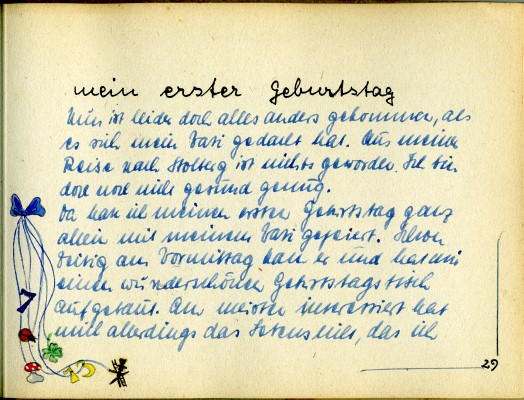 mein erster Geburtstag
Nun ist leider doch alles anders gekommen, als
es sich mein Vati gedacht hat. Aus meiner
Reise nach Stolberg ist nichts geworden. Ich bin
doch noch nicht gesund genug.
Da hab ich meinen ersten Geburtstag ganz
allein mit meinem Vati gefeiert. Schon
zeitig am Vormittag kam er und hat mir
einen wunderschönen Geburtstagstisch
aufgebaut. Am meisten interessiert hat
mich allerdings das Lebenslicht, das ich
7
13
29